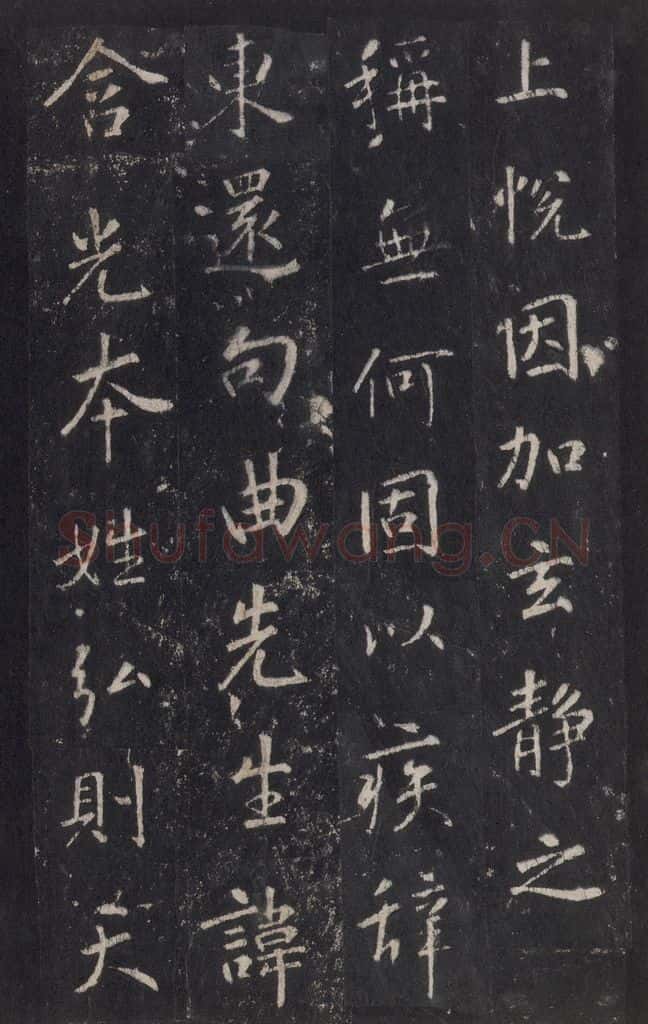 上悅因加玄靜之
稱無何固以疾辭
東還句曲先生諱
含光本姓弘則天
Shufawang.CN